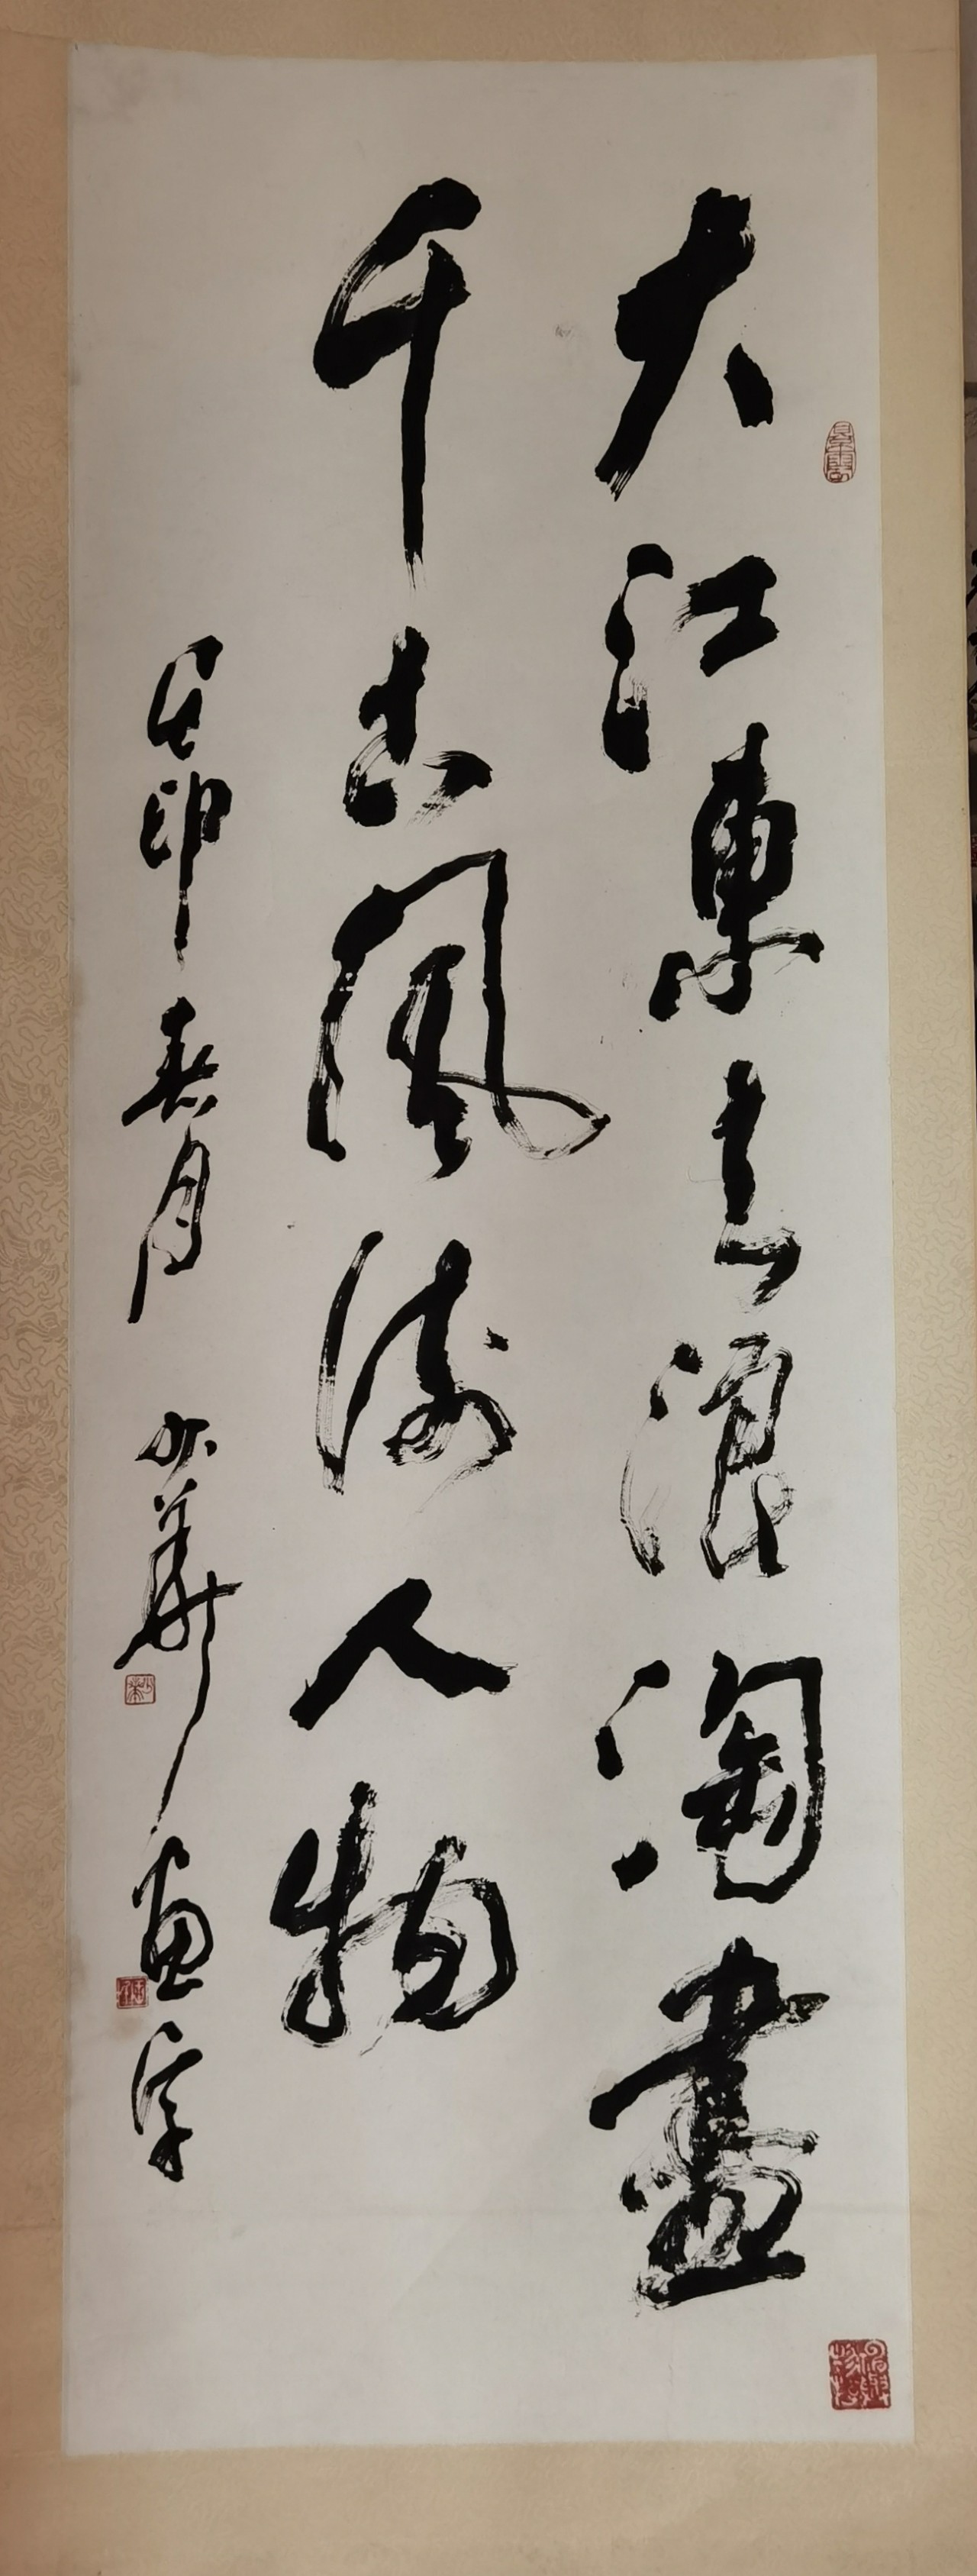 大江東去浪淘盡
千古風流人物
己卯春月 少華畫字